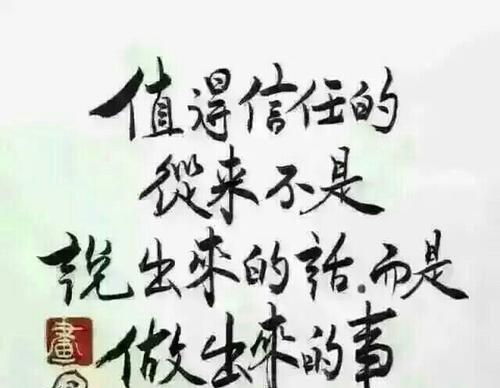 值得信任的
從来不是
説出來的話.而是
做出來的事
畫